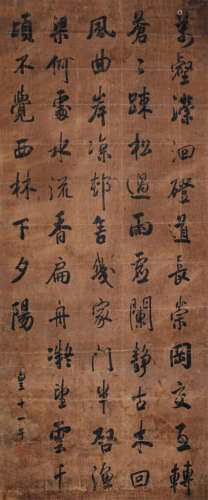 萬壑潆洄磴道長崇岡交互轉
蒼々疎松過雨虛闌靜古木回
風曲岸凉邨舍幾家門半啓漁
梁何處水流香扁舟凝望雲千
頃不覺西林下夕陽
皇十一子